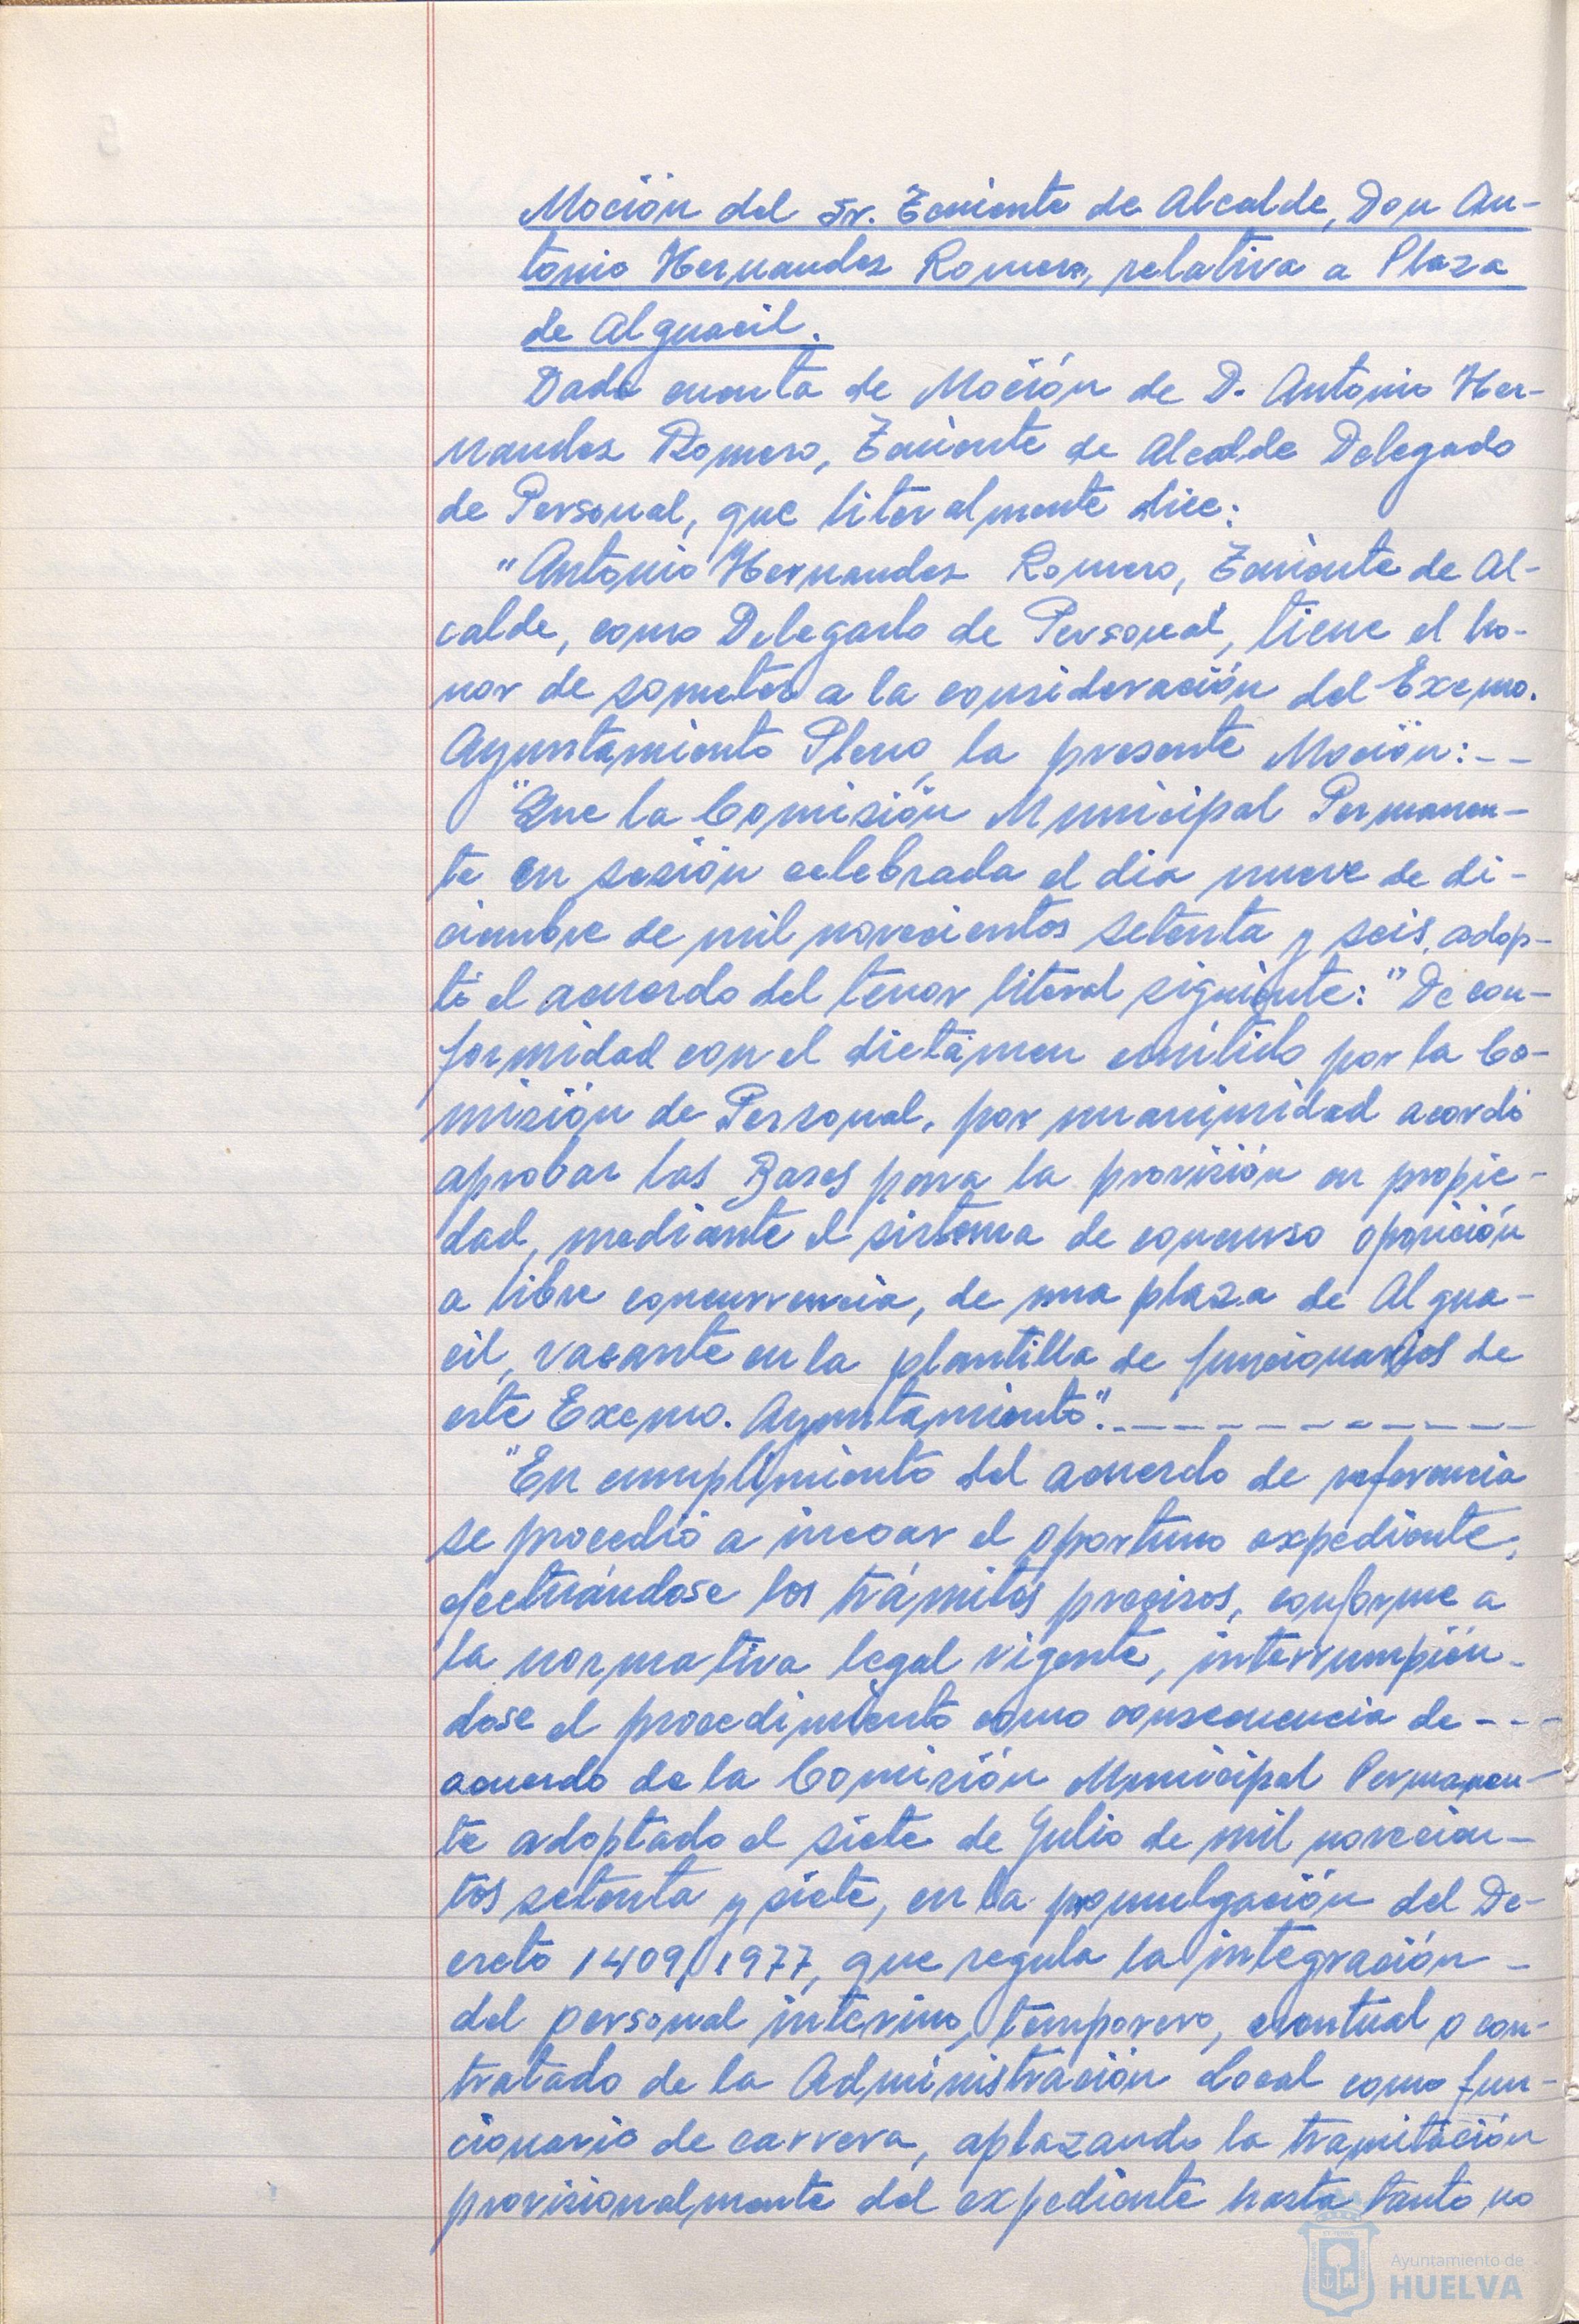 Moción del Sr. Teniente de Alcalde, Don An-
tonio Hernandez Romero, relativa a Plaza
de Alguacil.
Dada cuenta de Moción de D. Antonio Her-
nandez Romero, Teniente de Alcalde Delegado
de Personal, que literalmente dice:
"Antonio Hernandez Romero, Teniente de Al-
calde, como Delegado de Personal, tiene el ho-
nor de someter a la consideración del Excmo.
Ayuntamiento Pleno, la presente Moción:--
"Que la Comisión Municipal Permanen-
te en sesión celebrada el dia nueve de di-
ciembre de mil novecientos setenta y seis, adop-
tó el acuerdo del tenor literal siguiente: "De con-
formidad con el dictámen emitido por la Co-
misión de Personal, por unanimidad acordó
aprobar las Bases para la provisión en propie-
dad, mediante el sistema de concurso oposición
a libre concurrencia, de una plaza de Algua-
cil, vacante en la plantilla de funcionarios de
este Excmo. Ayuntamiento".-----------
"En cumplimiento del acuerdo de referencia
se procedió a incoar el oportuno expediente,
efectuándose los trámites precisos, conforme a
la normativa legal vigente, interrumpién-
dose el procedimiento como consecuencia de ---
acuerdo de la Comisión Municipal Permanen-
te adoptado el siete de Julio de mil novecien-
tos setenta y siete, en la promulgación del De-
creto 1409/1977, que regula la integración -
del personal interino, temporero, eventual o con-
tratado de la Administración Local como fun-
cionario de carrera, aplazando la tramitación
provisionalmente del expediente hasta tanto no
Ayuntamiento de
HUELVA